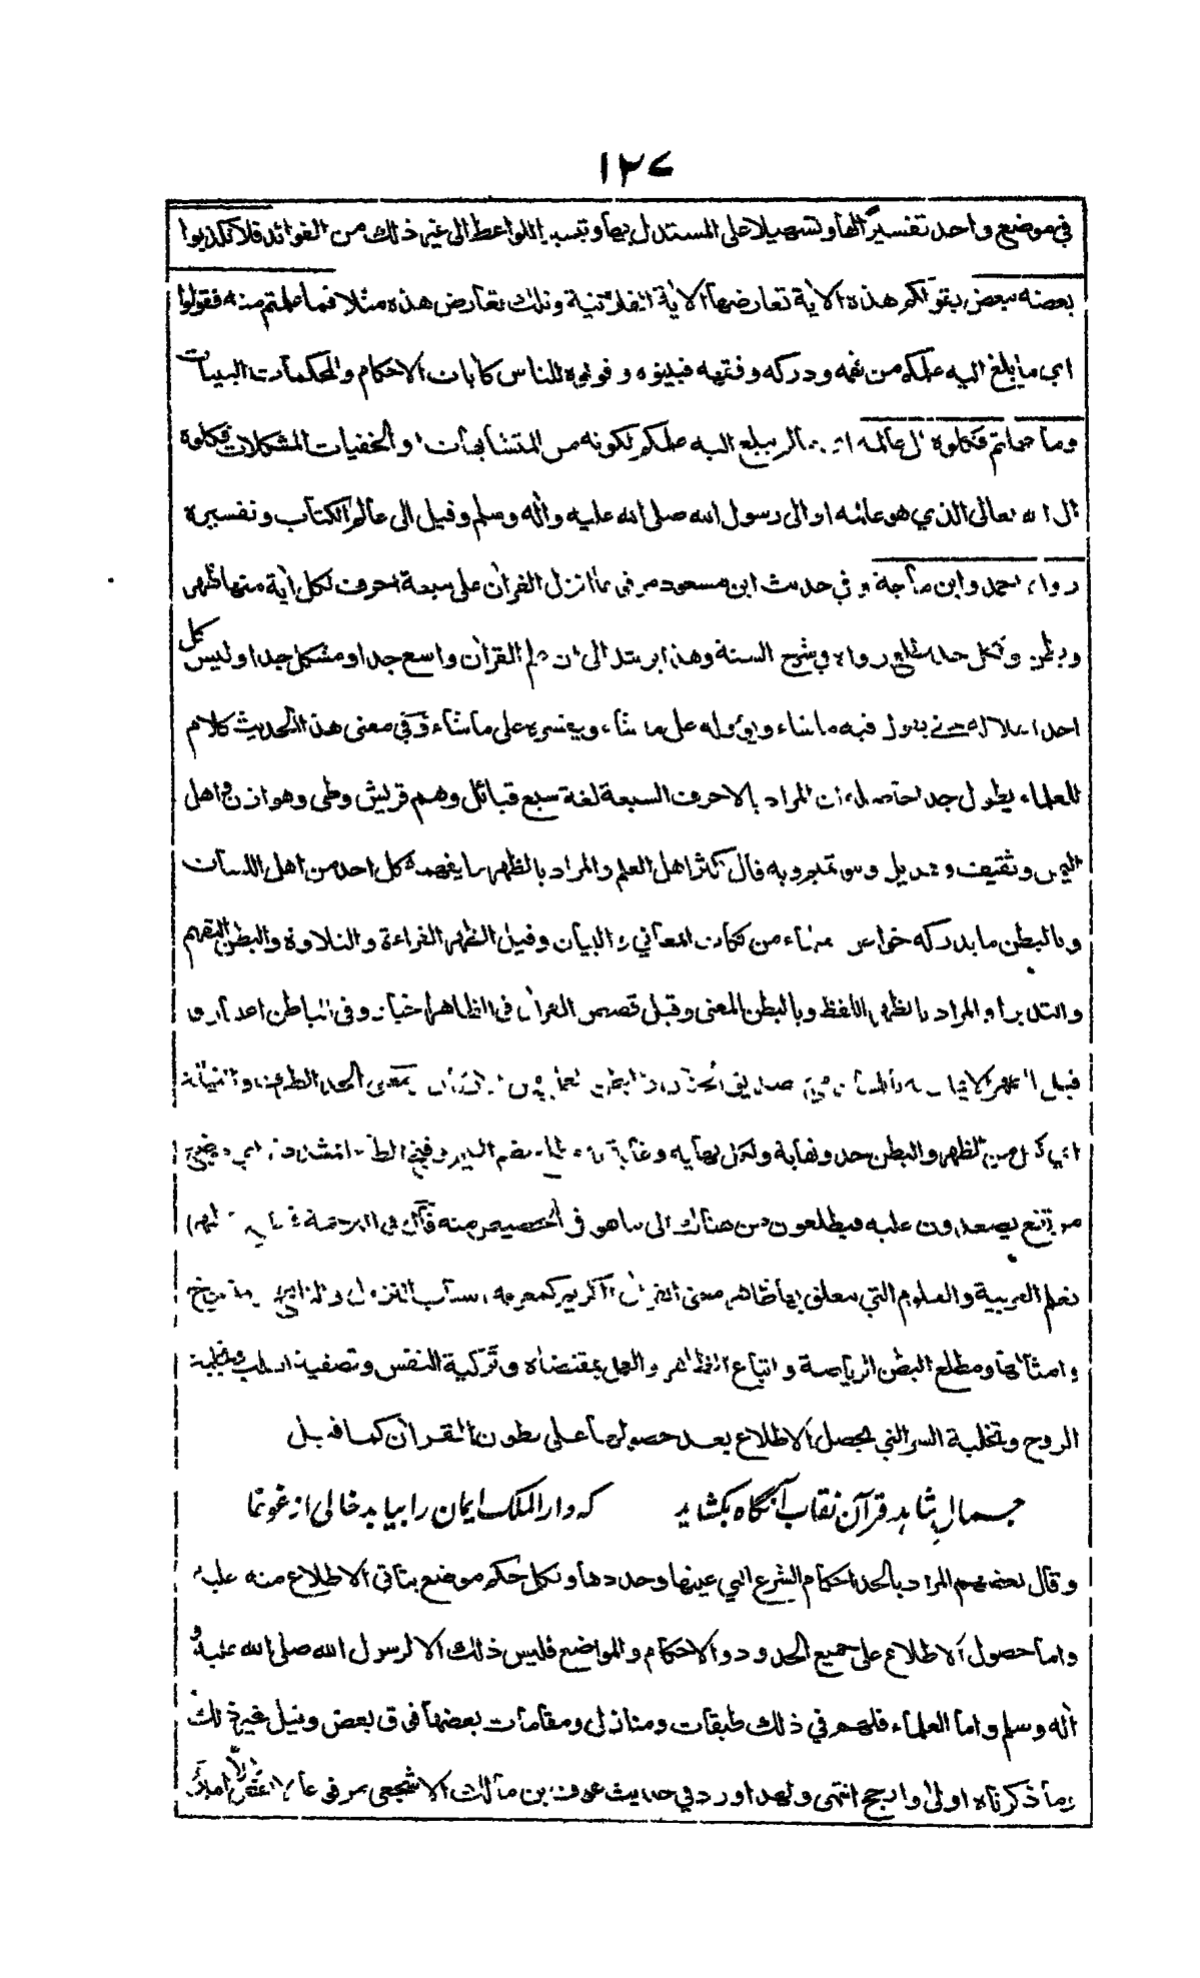 ١٢٧
في موضع واحد تفسيراً لها وتسهيلا على المستدل بها وتنبيها للواعظ الى غير ذلك من الفوائد فلا تكذبوا
بعضه ببعض بقولكم هذه الاية تعارضها الاية الفلانية وتلك تعارض هذه مثلا فما علمتم منه فقولوا
اي ما بلغ اليه علمكم من فهمه ودركه وفقهه فبينوه وقولوه للناس كآيات الاحكام والمحكمات البينات
وما جهلتم فكلوه الى عالمه اي ما لم يبلغ اليه علمكم لكونه من المتشابهات والخفيات المشكلات فكلوه
الى الله تعالى الذي هو عالمه او الى رسول الله صلى الله عليه وآله وسلم وقيل الى عالم الكتاب وتفسيره
رواه احمد وابن ماجة وفي حديث ابن مسعود مرفوعا انزل القرآن على سبعة احرف لكل آية منها ظهر
وبطن ولكل حد مطلع رواه في شرح السنة وهذا يرشد الى ان علم القرآن واسع جدا ومشكل جدا وليس كل
احد اهلا له حتى يقول فيه ما شاء ويؤوله على ما شاء ويفسره على ما شاء وفي معنى هذا الحديث كلام
للعلماء يطول جدا حاصله ان المراد بالاحرف السبعة لغة سبع قبائل وهم قريش وطي وهوازن واهل
اليمن وثقيف وهذيل وبنو تميم وبه قال اكثر اهل العلم والمراد بالظهر ما يفهمه كل احد من اهل اللسان
وبالبطن ما يدركه خواص من نكات المعاني والبيان وقيل الظهر القراءة والتلاوة والبطن التفهم
والتدبر او المراد بالظهر اللفظ وبالبطن المعنى وقيل قصص القرآن في الظاهر اخبار وفي الباطن اعتبار و
قيل الظهر الايمان به والبطن العمل بمعنى الحد الطرف والنهاية
اي لكل من الظهر والبطن حد ونهاية ولكل نهاية وغاية مطلع بضم الميم وفتح الطاء المشددة اي موضع
مرتفع يصعدون عليه فيطلعون من هناك الى ما هو في الحصيص منه قال في الترجمة
تعلم العربية والعلوم التي يتعلق بها ظاهر معنى القرآن كمعرفة اسباب النزول والناسخ
وامثالها ومطلع البطن الرياضة واتباع الظاهر والعمل بمقتضاه وتزكية النفس وتصفية القلب وتجلية
الروح وتخلية السر التي يحصل الاطلاع بعد حصولها على بطون القرآن كما قيل
جمال شاهد قرآن نقاب آنگاه بکشاید که دار الملک ایمان را بیابد خالی از غوغا
وقال بعضهم المراد بالحد احكام الشرع التي عينها وحددها ولكل حكم موضع يتأتى الاطلاع منه عليه
واما حصول الاطلاع على جميع الحدود والاحكام والمواضع فليس ذلك الا لرسول الله صلى الله عليه و
آله وسلم واما العلماء فلهم في ذلك طبقات ومنازل ومقامات بعضها فوق بعض وقيل غير ذلك
وما ذكرناه اولى وارجح انتهى وقد ورد في حديث عوف بن مالك الاشجعي مرفوعا لا يقص الا امير